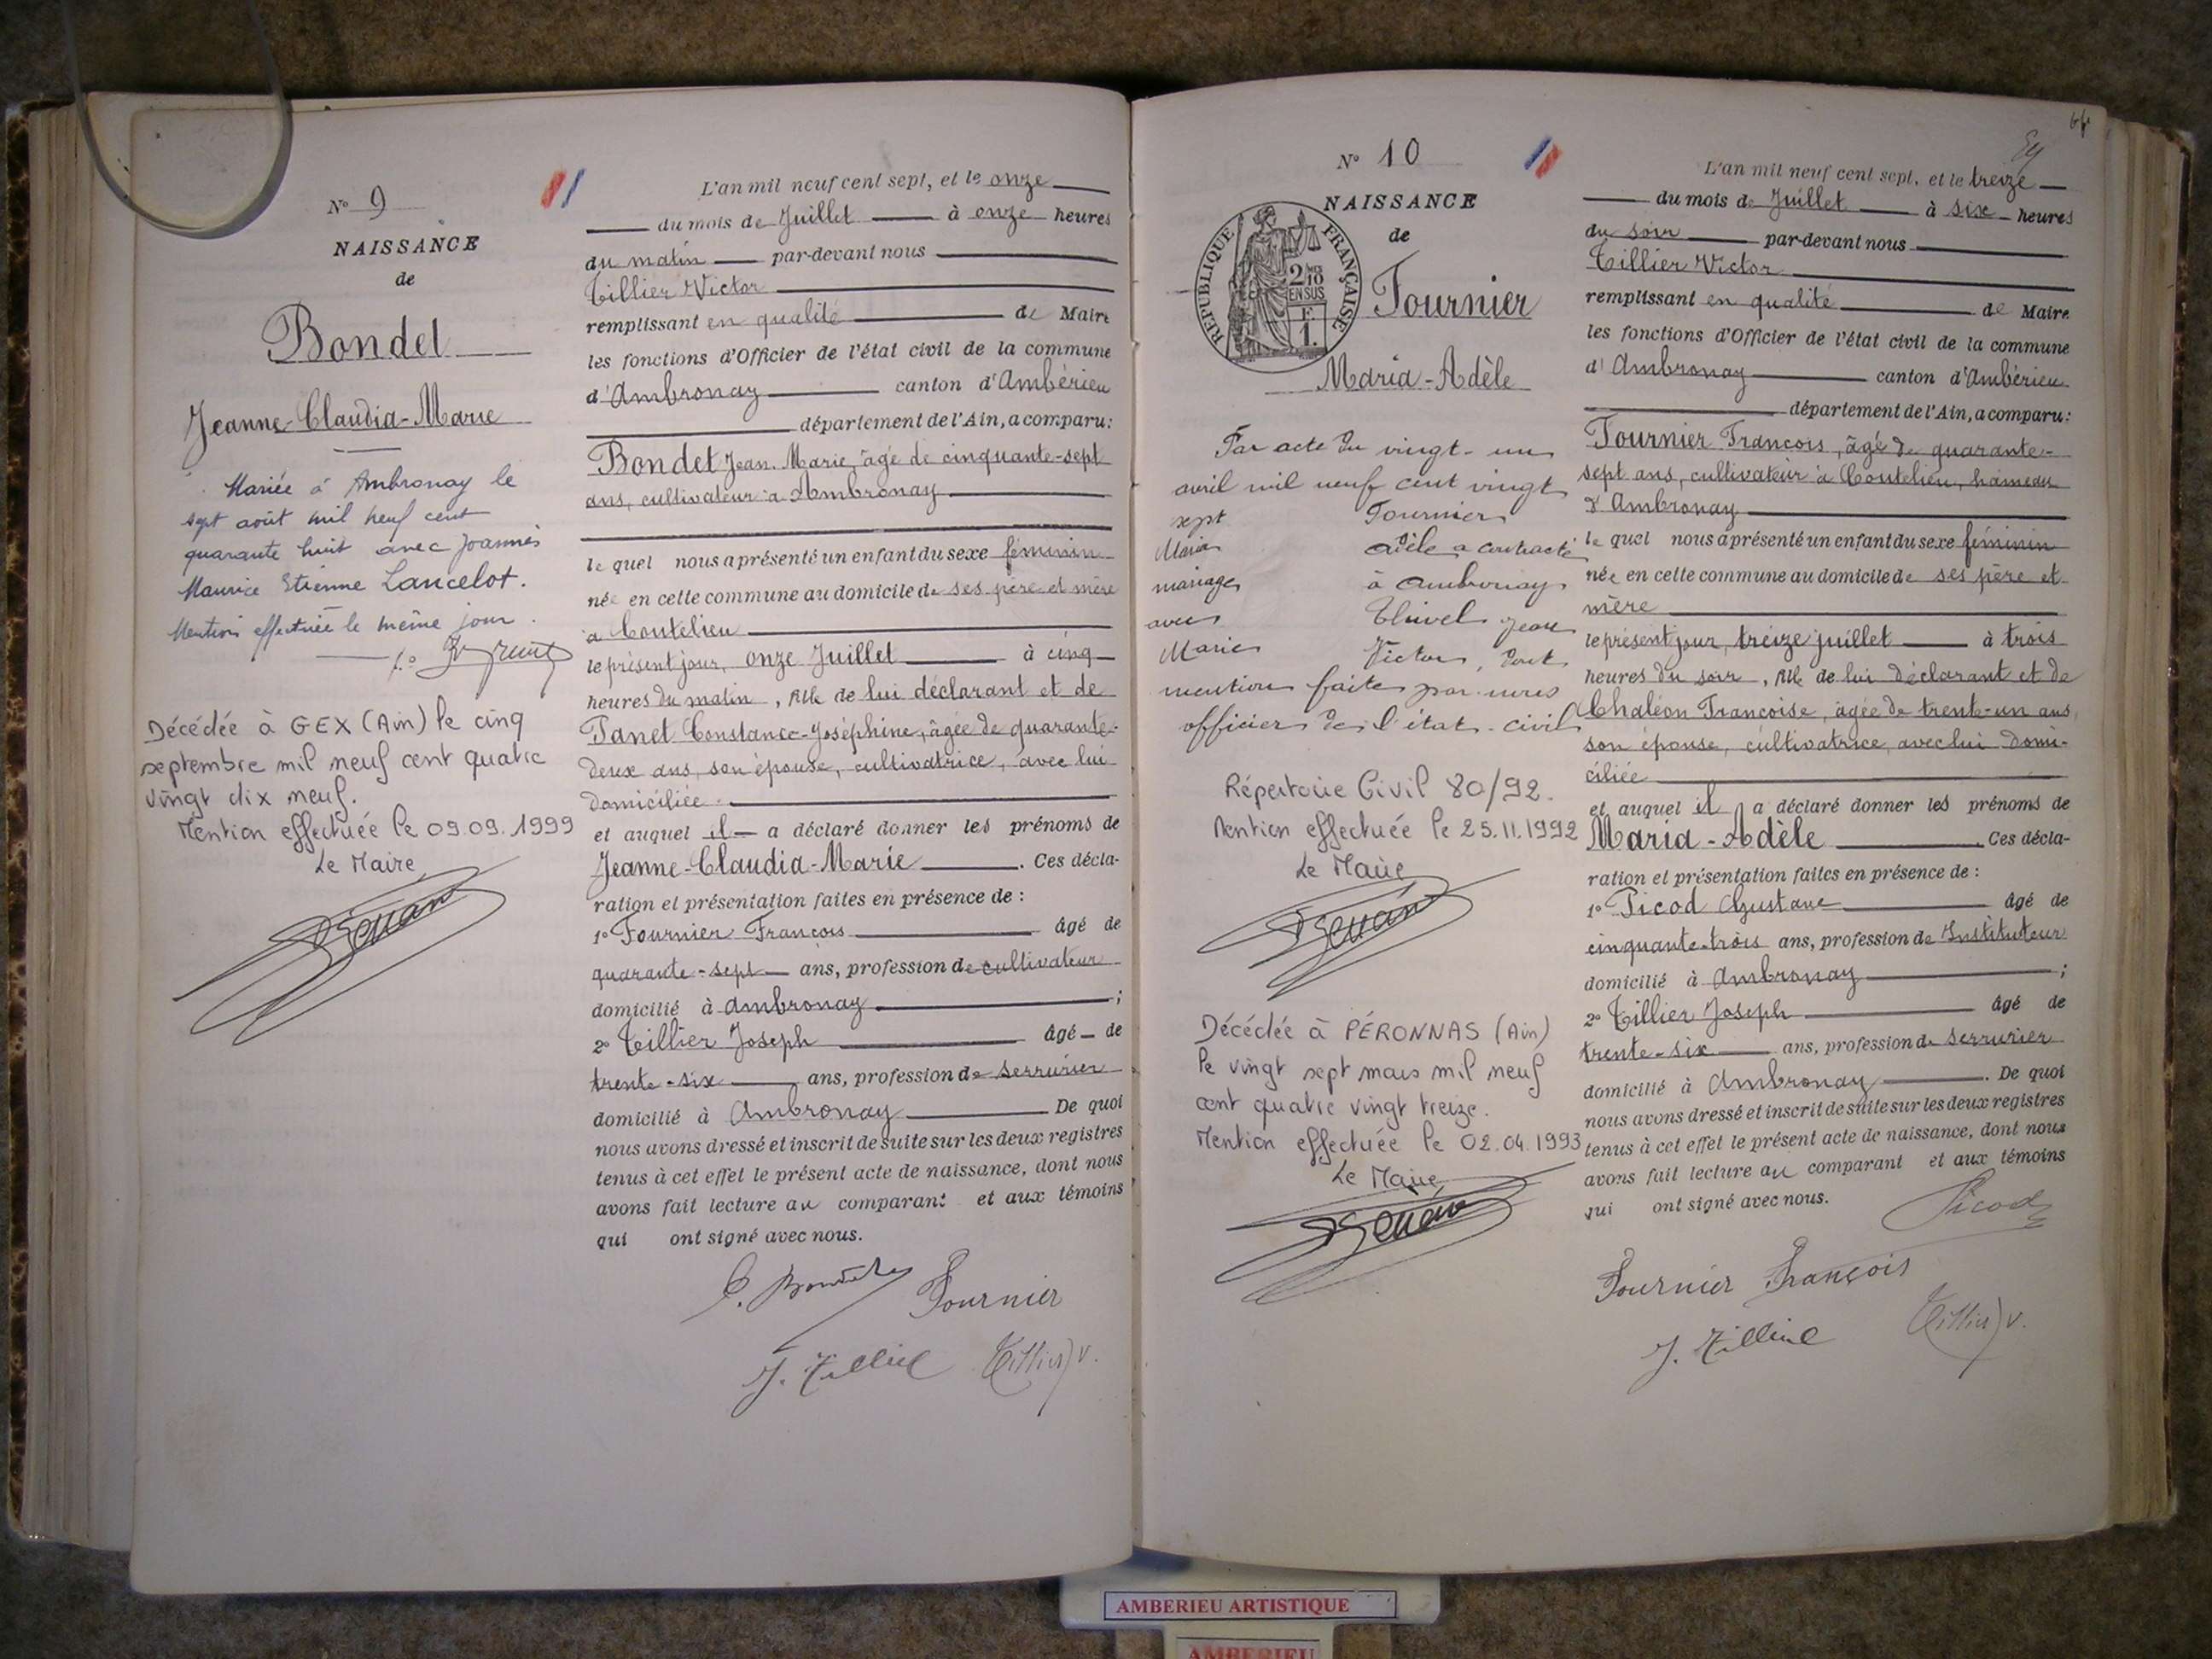 N° 9
NAISSANCE
de
Bondet
Jeanne-Claudia-Marie
Mariée à Ambronay le
sept août mil neuf cent
quarante huit avec Joannès
Maurice Etienne Lancelot.
Mention effectuée le même jour.
Décédée à GEX (Ain) le cinq
septembre mil neuf cent quatre
vingt dix neuf.
Mention effectuée le 09.09.1999
Le Maire
L'an mil neuf cent sept, et le onze
du mois de Juillet à onze heures
du matin par-devant nous
Tillier Victor
remplissant en qualité de Maire
les fonctions d'Officier de l'état civil de la commune
d'Ambronay canton d'Ambérieu
département de l'Ain, a comparu:
Bondet Jean-Marie, âgé de cinquante-sept
ans, cultivateur à Ambronay
le quel nous a présenté un enfant du sexe féminin
née en cette commune au domicile de ses père et mère
à Coutelieu
le présent jour, onze Juillet à cinq
heures du matin, fille de lui déclarant et de
Panet Constance-Joséphine, âgée de quarante-
deux ans, son épouse, cultivatrice, avec lui
domiciliée.
et auquel il a déclaré donner les prénoms de
Jeanne-Claudia-Marie. Ces décla-
ration et présentation faites en présence de :
1° Fournier François âgé de
quarante-sept ans, profession de cultivateur
domicilié à Ambronay ;
2° Tillier Joseph âgé de
trente-six ans, profession de serrurier
domicilié à Ambronay De quoi
nous avons dressé et inscrit de suite sur les deux registres
tenus à cet effet le présent acte de naissance, dont nous
avons fait lecture au comparant et aux témoins
qui ont signé avec nous.
Fournier
J. Tillier Tillier V.
N° 10
NAISSANCE
de
RÉPUBLIQUE FRANÇAISE
2/10
EN SUS
F
1.
Fournier
Maria-Adèle
Par acte du vingt-un
avril mil neuf cent vingt
sept Fournier
Maria Adèle a contracté
mariage à Ambronay
avec Thivel Jean
Marie Victor, dont
mention faite par nous
officier de l'état-civil
Répertoire Civil 80/92.
Mention effectuée le 25.11.1992
Le Maire
Décédée à PÉRONNAS (Ain)
le vingt sept mars mil neuf
cent quatre vingt treize.
Mention effectuée le 02.04.1993
Le Maire
L'an mil neuf cent sept, et le treize
du mois de Juillet à six heures
du soir par-devant nous
Tillier Victor
remplissant en qualité de Maire
les fonctions d'Officier de l'état civil de la commune
d'Ambronay canton d'Ambérieu
département de l'Ain, a comparu:
Fournier François, âgé de quarante-
sept ans, cultivateur à Coutelieu, hameau
d'Ambronay
le quel nous a présenté un enfant du sexe féminin
née en cette commune au domicile de ses père et
mère
le présent jour, treize juillet à trois
heures du soir, fille de lui déclarant et de
Chaléon Françoise, âgée de trente-un ans,
son épouse, cultivatrice, avec lui domi-
ciliée
et auquel il a déclaré donner les prénoms de
Maria-Adèle. Ces décla-
ration et présentation faites en présence de :
1° Picod Gustave âgé de
cinquante-trois ans, profession de Instituteur
domicilié à Ambronay ;
2° Tillier Joseph âgé de
trente-six ans, profession de serrurier
domicilié à Ambronay. De quoi
nous avons dressé et inscrit de suite sur les deux registres
tenus à cet effet le présent acte de naissance, dont nous
avons fait lecture au comparant et aux témoins
qui ont signé avec nous.
Picod
Fournier François
J. Tillier Tillier V.
AMBERIEU ARTISTIQUE
AMBERIEU